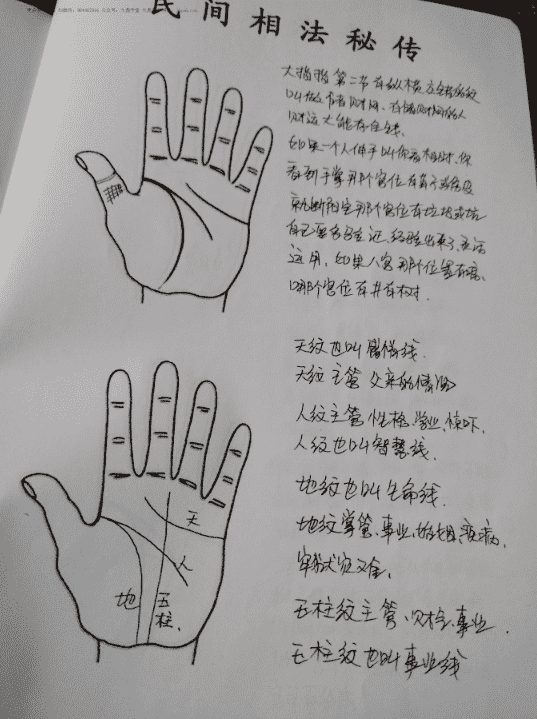 民间相法秘传
大拇指第二节有纵横交错的纹
叫做有者财网、有有财网的人
财运大能存住钱、
如果一个人伸手叫你看相时、你
看到手掌那个宫位有
就断阳宅那个宫位有垃圾或坑
自己要多多验证、经验出来了、灵活
运用、如果八宫那个位置有痣、
那个宫位有井有树.
天纹也叫感情线.
天纹主管父亲的情况
人纹主管性格、学业、惊吓、
人纹也叫智慧线.
地纹也叫生命线.
地纹掌管、事业、婚姻、疾病、
牢狱官灾
玉柱纹主管、财经、事业.
玉柱纹也叫事业线
天
人
地
玉
柱、